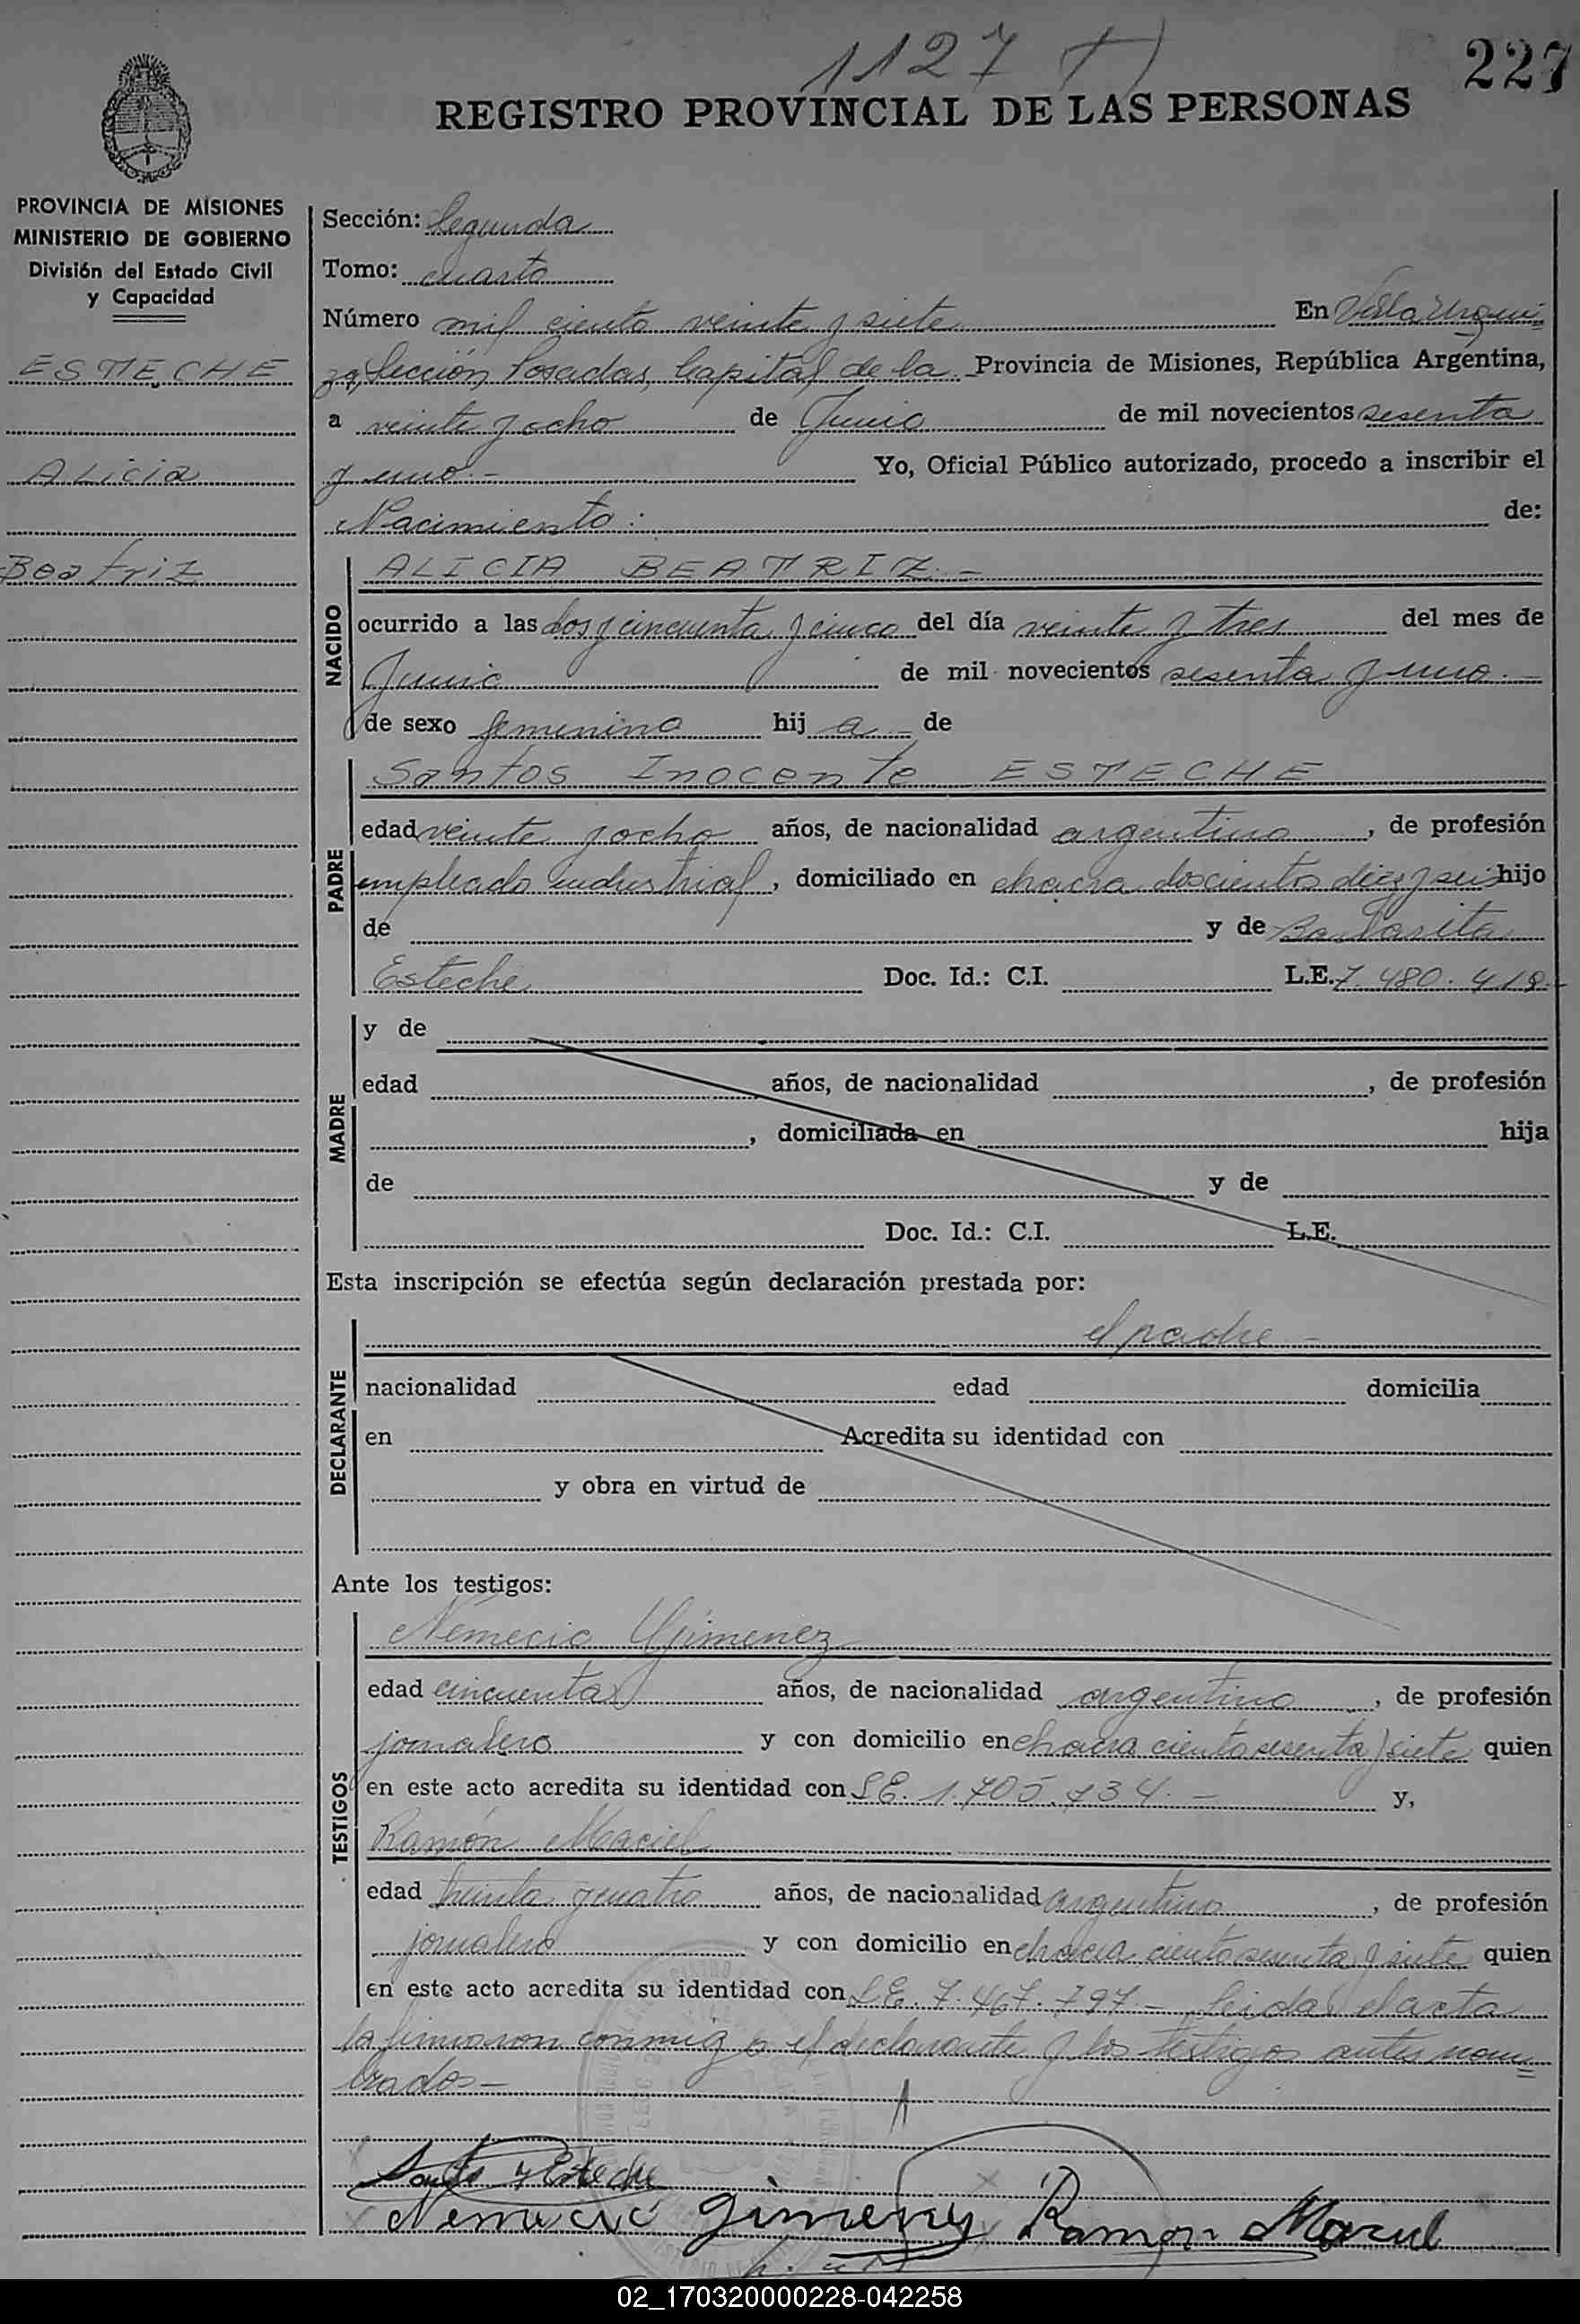 1127
227
REGISTRO PROVINCIAL DE LAS PERSONAS
PROVINCIA DE MISIONES
MINISTERIO DE GOBIERNO
División del Estado Civil
y Capacidad
ESTECHE
Alicia
Beatriz
Sección: Segunda
Tomo: cuarto
Número mil ciento veinte y siete En Villa Urqui-
za, Sección Posadas, Capital de la Provincia de Misiones, República Argentina,
a veinte y ocho de Junio de mil novecientos sesenta
y uno.- Yo, Oficial Público autorizado, procedo a inscribir el
Nacimiento: de:
NACIDO
ALICIA BEATRIZ.-
ocurrido a las dos y cincuenta y cinco del día veinte y tres del mes de
Junio de mil novecientos sesenta y uno.-
de sexo femenino hij a de
PADRE
Santos Inocente ESTECHE
edad veinte y ocho años, de nacionalidad argentino, de profesión
empleado industrial, domiciliado en chacra doscientos diez y seis hijo
de y de
Esteche Doc. Id.: C.I. L.E. 7.480.419.-
MADRE
y de
edad años, de nacionalidad , de profesión
, domiciliada en hija
de y de
Doc. Id.: C.I. L.E.
Esta inscripción se efectúa según declaración prestada por:
DECLARANTE
el padre -
nacionalidad edad domicilia
en Acredita su identidad con
y obra en virtud de
Ante los testigos:
TESTIGOS
Nemecio Gimenez
edad cincuenta años, de nacionalidad argentino, de profesión
jornalero y con domicilio en chacra ciento sesenta y siete quien
en este acto acredita su identidad con L.E. 1.705.734.- y,
Ramón Maciel
edad treinta y cuatro años, de nacionalidad argentino, de profesión
jornalero y con domicilio en chacra ciento sesenta y siete quien
en este acto acredita su identidad con L.E. 7.467.797.- Leida el acta
la firmaron conmigo el declarante y los testigos antes nom=
brados-
Santos Y Esteche
Nemecio Gimenez Ramon Maciel
02_170320000228-042258